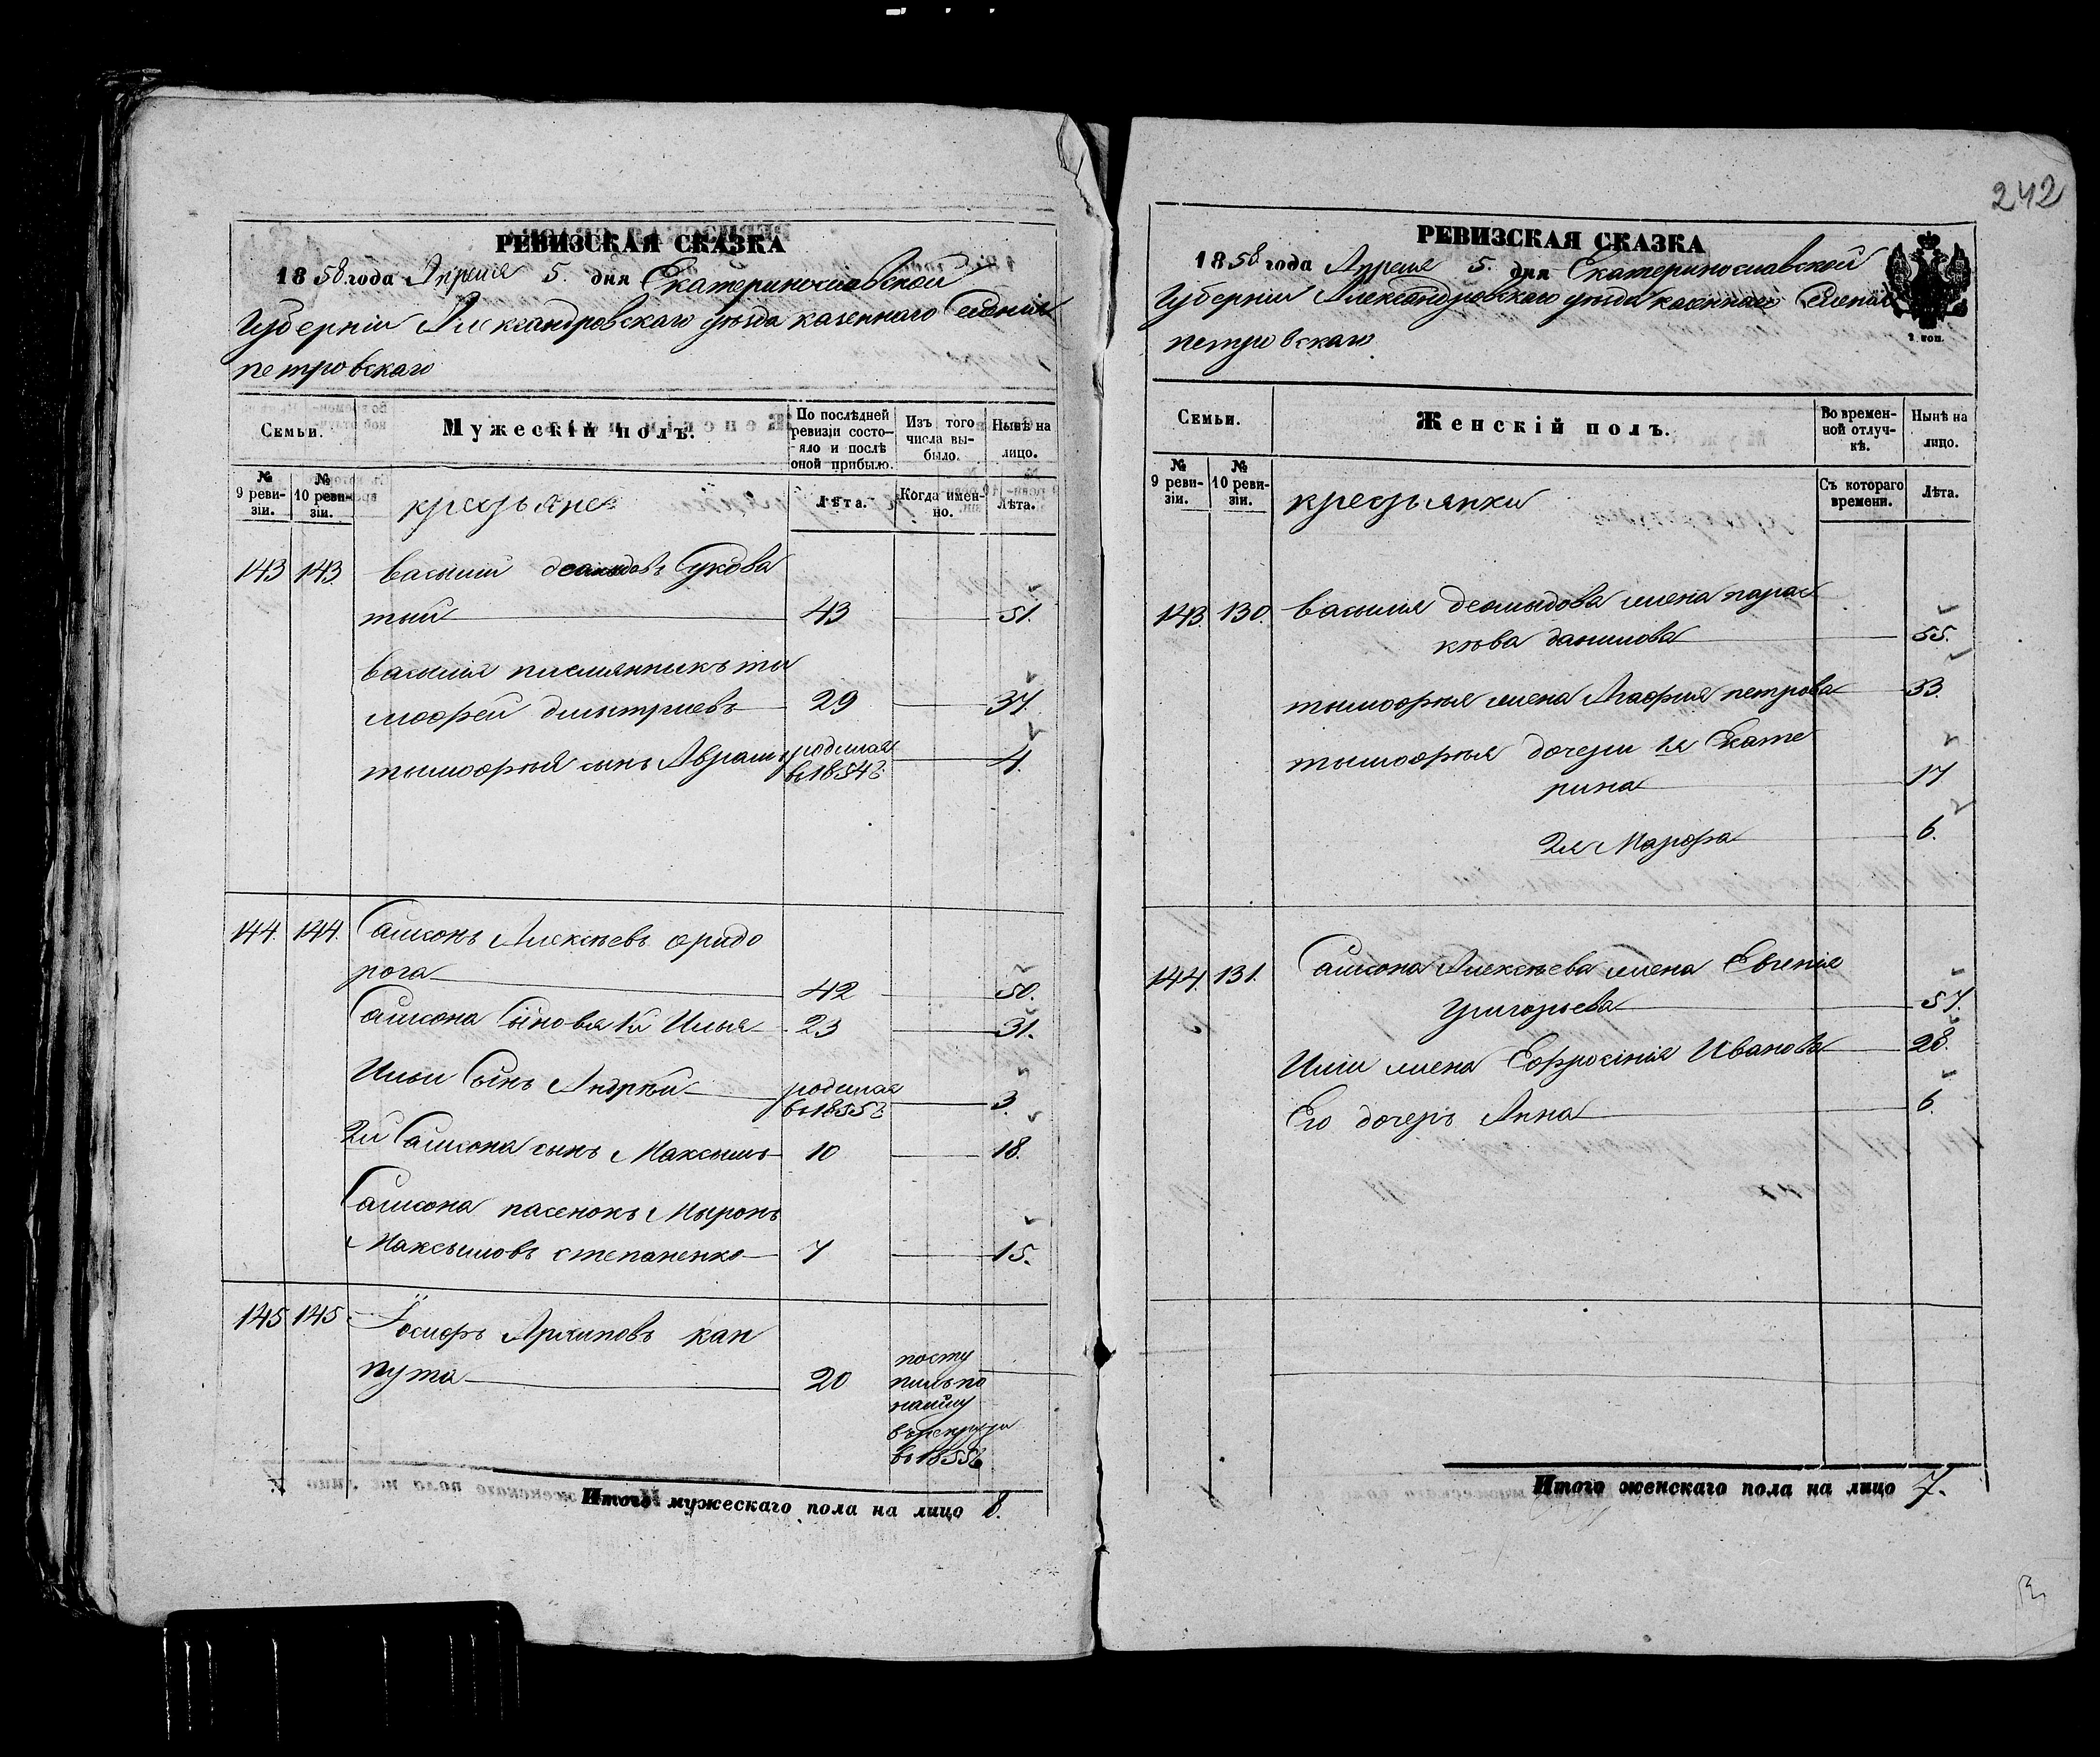 242
РЕВИЗСКАЯ СКАЗКА
1858 года Апреля 5. дня Екатеринославской
Губерніи Александровскаго уѣзда казеннаго Селенія
петровскаго
Семьи.
Мужескій полъ.
По послѣдней ревизіи состояло и послѣ оной прибыло.
Изъ того числа выбыло.
Нынѣ на лицо.
№ 9 ревизіи.
№ 10 ревизіи.
крестьяне
Лѣта.
Когда именно.
Лѣта.
143 143 василий демыдовъ Сукова
тый 43 51.
василія племянныкъ ти
мофей дмытриевъ 29 37.
тымофея сынъ Аврамъ родился в 1854 г. 4.
144. 144. Самсонъ Алексѣевъ фридо
рога 42 50.
Самсона Сыновья 1й Илья 23 31.
Ильи Сынъ Андрѣй родился в 1855 г. 3.
2й Самсона сынъ Максымъ 10 18.
Самсона пасенокъ Мыронъ
Максымовъ степаненко 7 15.
145 145 Іосифъ Архиповъ кап
пута 20
посту
пилъ по
найму
въ рекруты
в 1855 г.
Итого мужескаго пола на лицо 8.
РЕВИЗСКАЯ СКАЗКА
1858 года Апреля 5. дня Екатеринославской
Губерніи Александровскаго уѣзда казеннаго Селенія
петровскаго
2 коп.
Семьи.
Женскій полъ.
Во временной отлучкѣ.
Нынѣ на лицо.
№ 9 ревизіи.
№ 10 ревизіи.
крестьянки
Съ котораго времени.
Лѣта.
143. 130. василия демыдова жена парас
кѣва данилова 55.
тымофея жена Агафия петрова 33.
тымофея дочери 1я Екате
рина 17
2я Марфа 6.
144. 131. Самсона Алексѣева жена Евгенія
Григорьева 57.
Ильи жена Ефросінія Иванова 28.
Его дочерь Анна 6.
Итого женскаго пола на лицо 7.